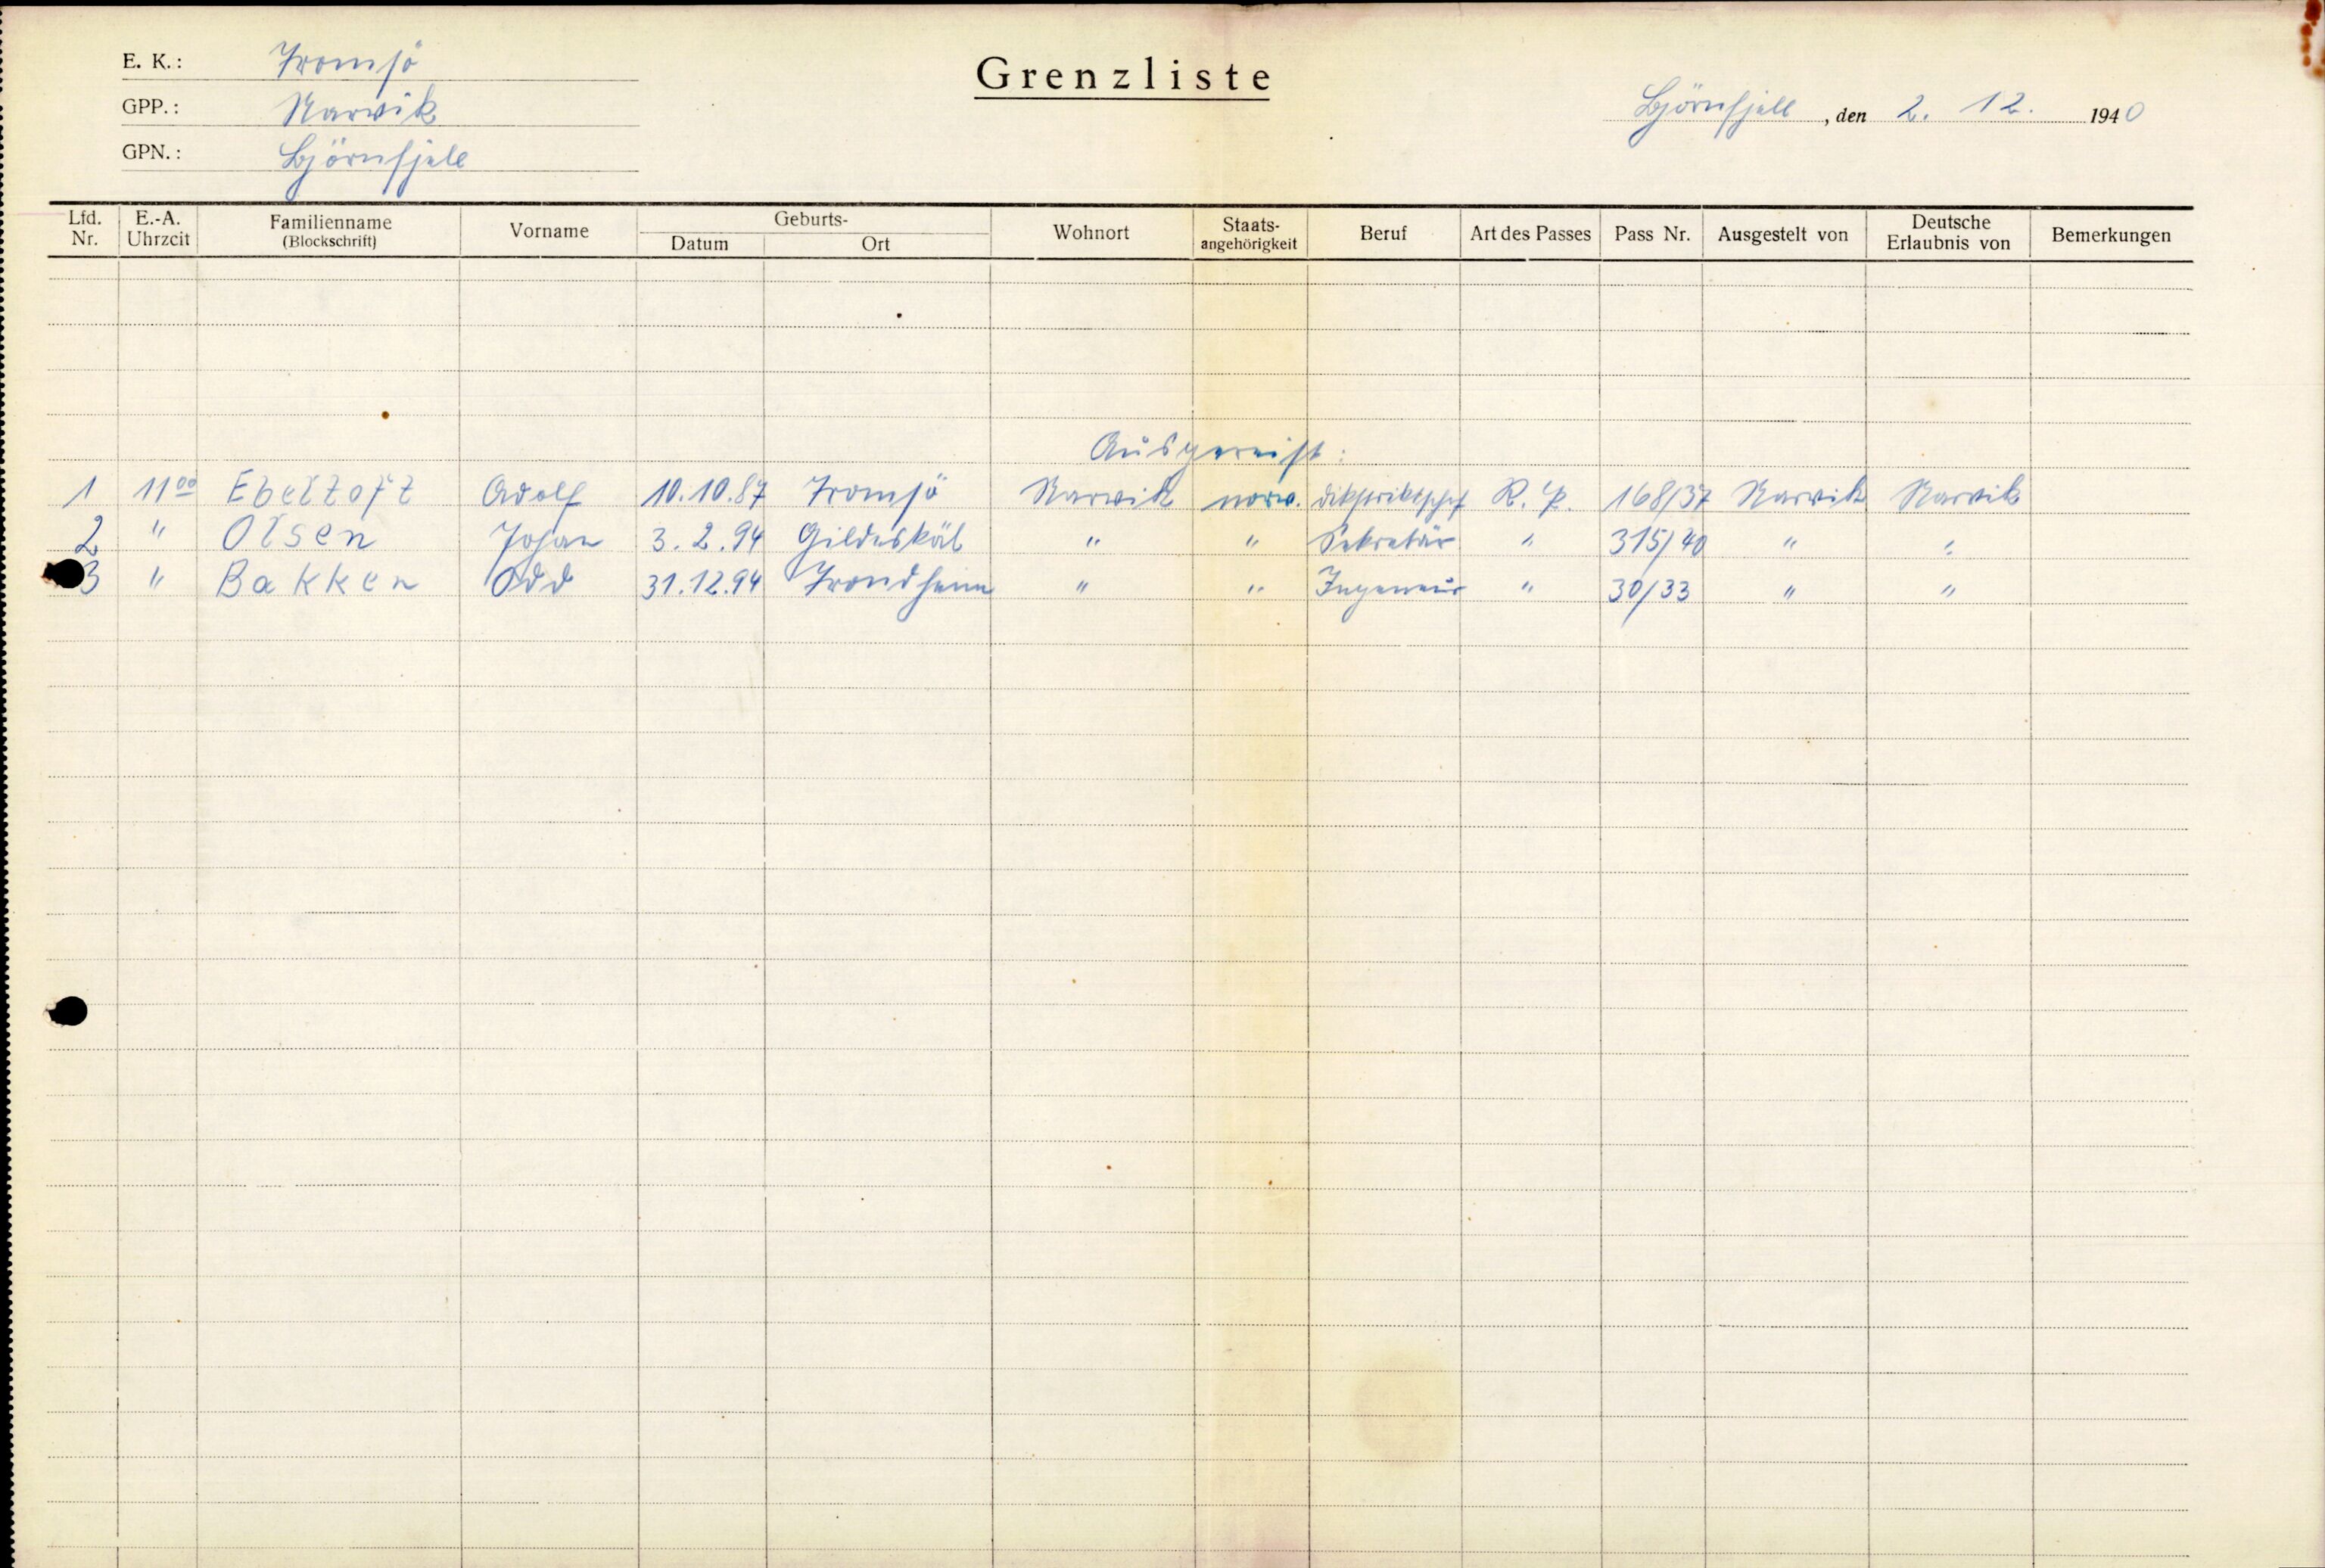 E. K.: Tromsö
GPP.: Narvik
GPN.: Björnfjell
Grenzliste
Björnfjell, den 2. 12. 1940
Lfd. Nr. | E.-A. Uhrzeit | Familienname (Blockschrift) | Vorname | Geburts- Datum | Ort | Wohnort | Staats-angehörigkeit | Beruf | Art des Passes | Pass Nr. | Ausgestelt von | Deutsche Erlaubnis von | Bemerkungen
Ausgereist:
1 11⁰⁰ Ebeltoft Adolf 10.10.87 Tromsö Narvik norw. R. P. 168/37 Narvik Narvik
2 " Olsen Johan 3.2.94 Gildeskål " " Sekretär " 315/40 " "
3 " Bakken Odd 31.12.94 Trondheim " " Ingeneur " 30/33 " "